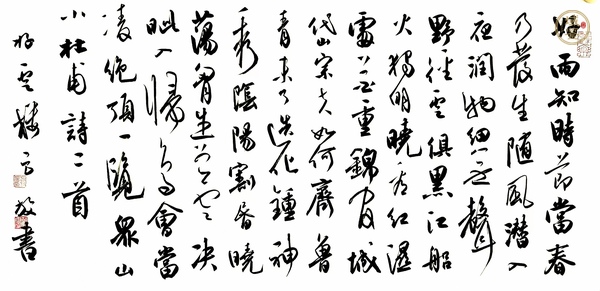 好雨知時節當春
乃發生隨風潛入
夜潤物細無聲
野徑雲俱黑江船
火獨明曉看紅濕
處花重錦官城
岱宗夫如何齊魯
青未了造化鍾神
秀陰陽割昏曉
蕩胸生曾雲決
眦入歸鳥會當
凌絕頂一覽眾山
小杜甫詩二首
雲樓書